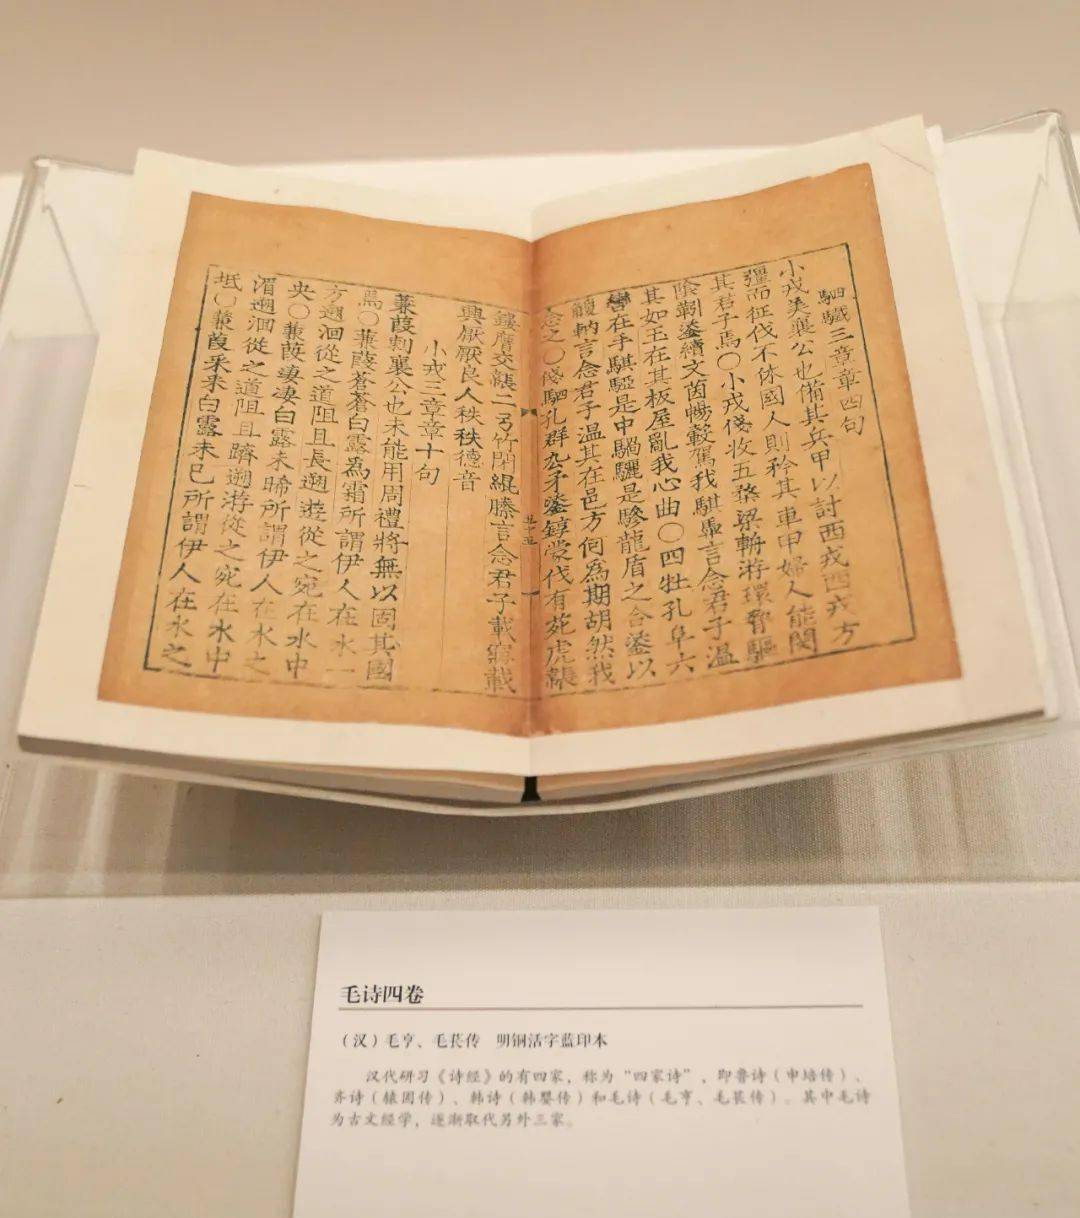 駟驖三章章四句
小戎美襄公也備其兵甲以討西戎西戎方
彊而征伐不休國人則矜其車甲婦人能閔
其君子焉○小戎俴收五楘梁輈游環脅驅
陰靷鋈續文茵暢轂駕我騏馵言念君子溫
其如玉在其板屋亂我心曲○四牡孔阜六
轡在手騏駵是中騧驪是驂龍盾之合鋈以
觼軜言念君子溫其在邑方何為期胡然我
念之○俴駟孔群厹矛鋈錞蒙伐有苑虎韔
鏤膺交韔二弓竹閉緄縢言念君子載寢載
興厭厭良人秩秩德音
小戎三章章十句
蒹葭刺襄公也未能用周禮將無以固其國
焉○蒹葭蒼蒼白露為霜所謂伊人在水一
方遡洄從之道阻且長遡遊從之宛在水中
央○蒹葭淒淒白露未晞所謂伊人在水之
湄遡洄從之道阻且躋遡游從之宛在水中
坻○蒹葭采采白露未已所謂伊人在水之
毛诗四卷
（汉）毛亨、毛苌传 明铜活字蓝印本
汉代研习《诗经》的有四家，称为“四家诗”，即鲁诗（申培传）、
齐诗（辕固传）、韩诗（韩婴传）和毛诗（毛亨、毛苌传）。其中毛诗
为古文经学，逐渐取代另外三家。